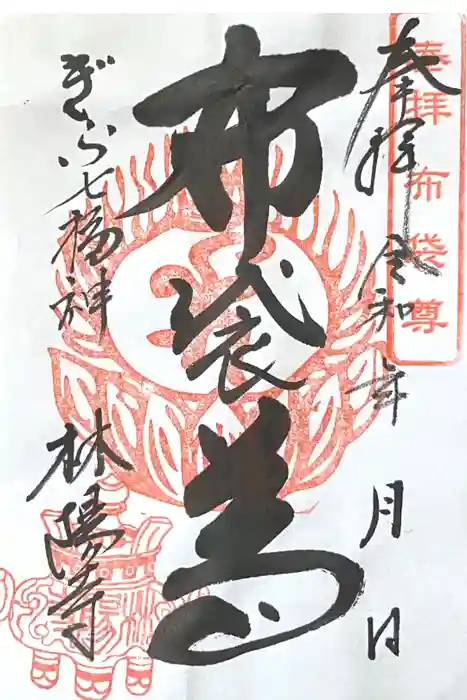 奉拝 令和 年 月 日
奉拝 布袋尊
布袋尊
ぎふ七福神
林陽寺